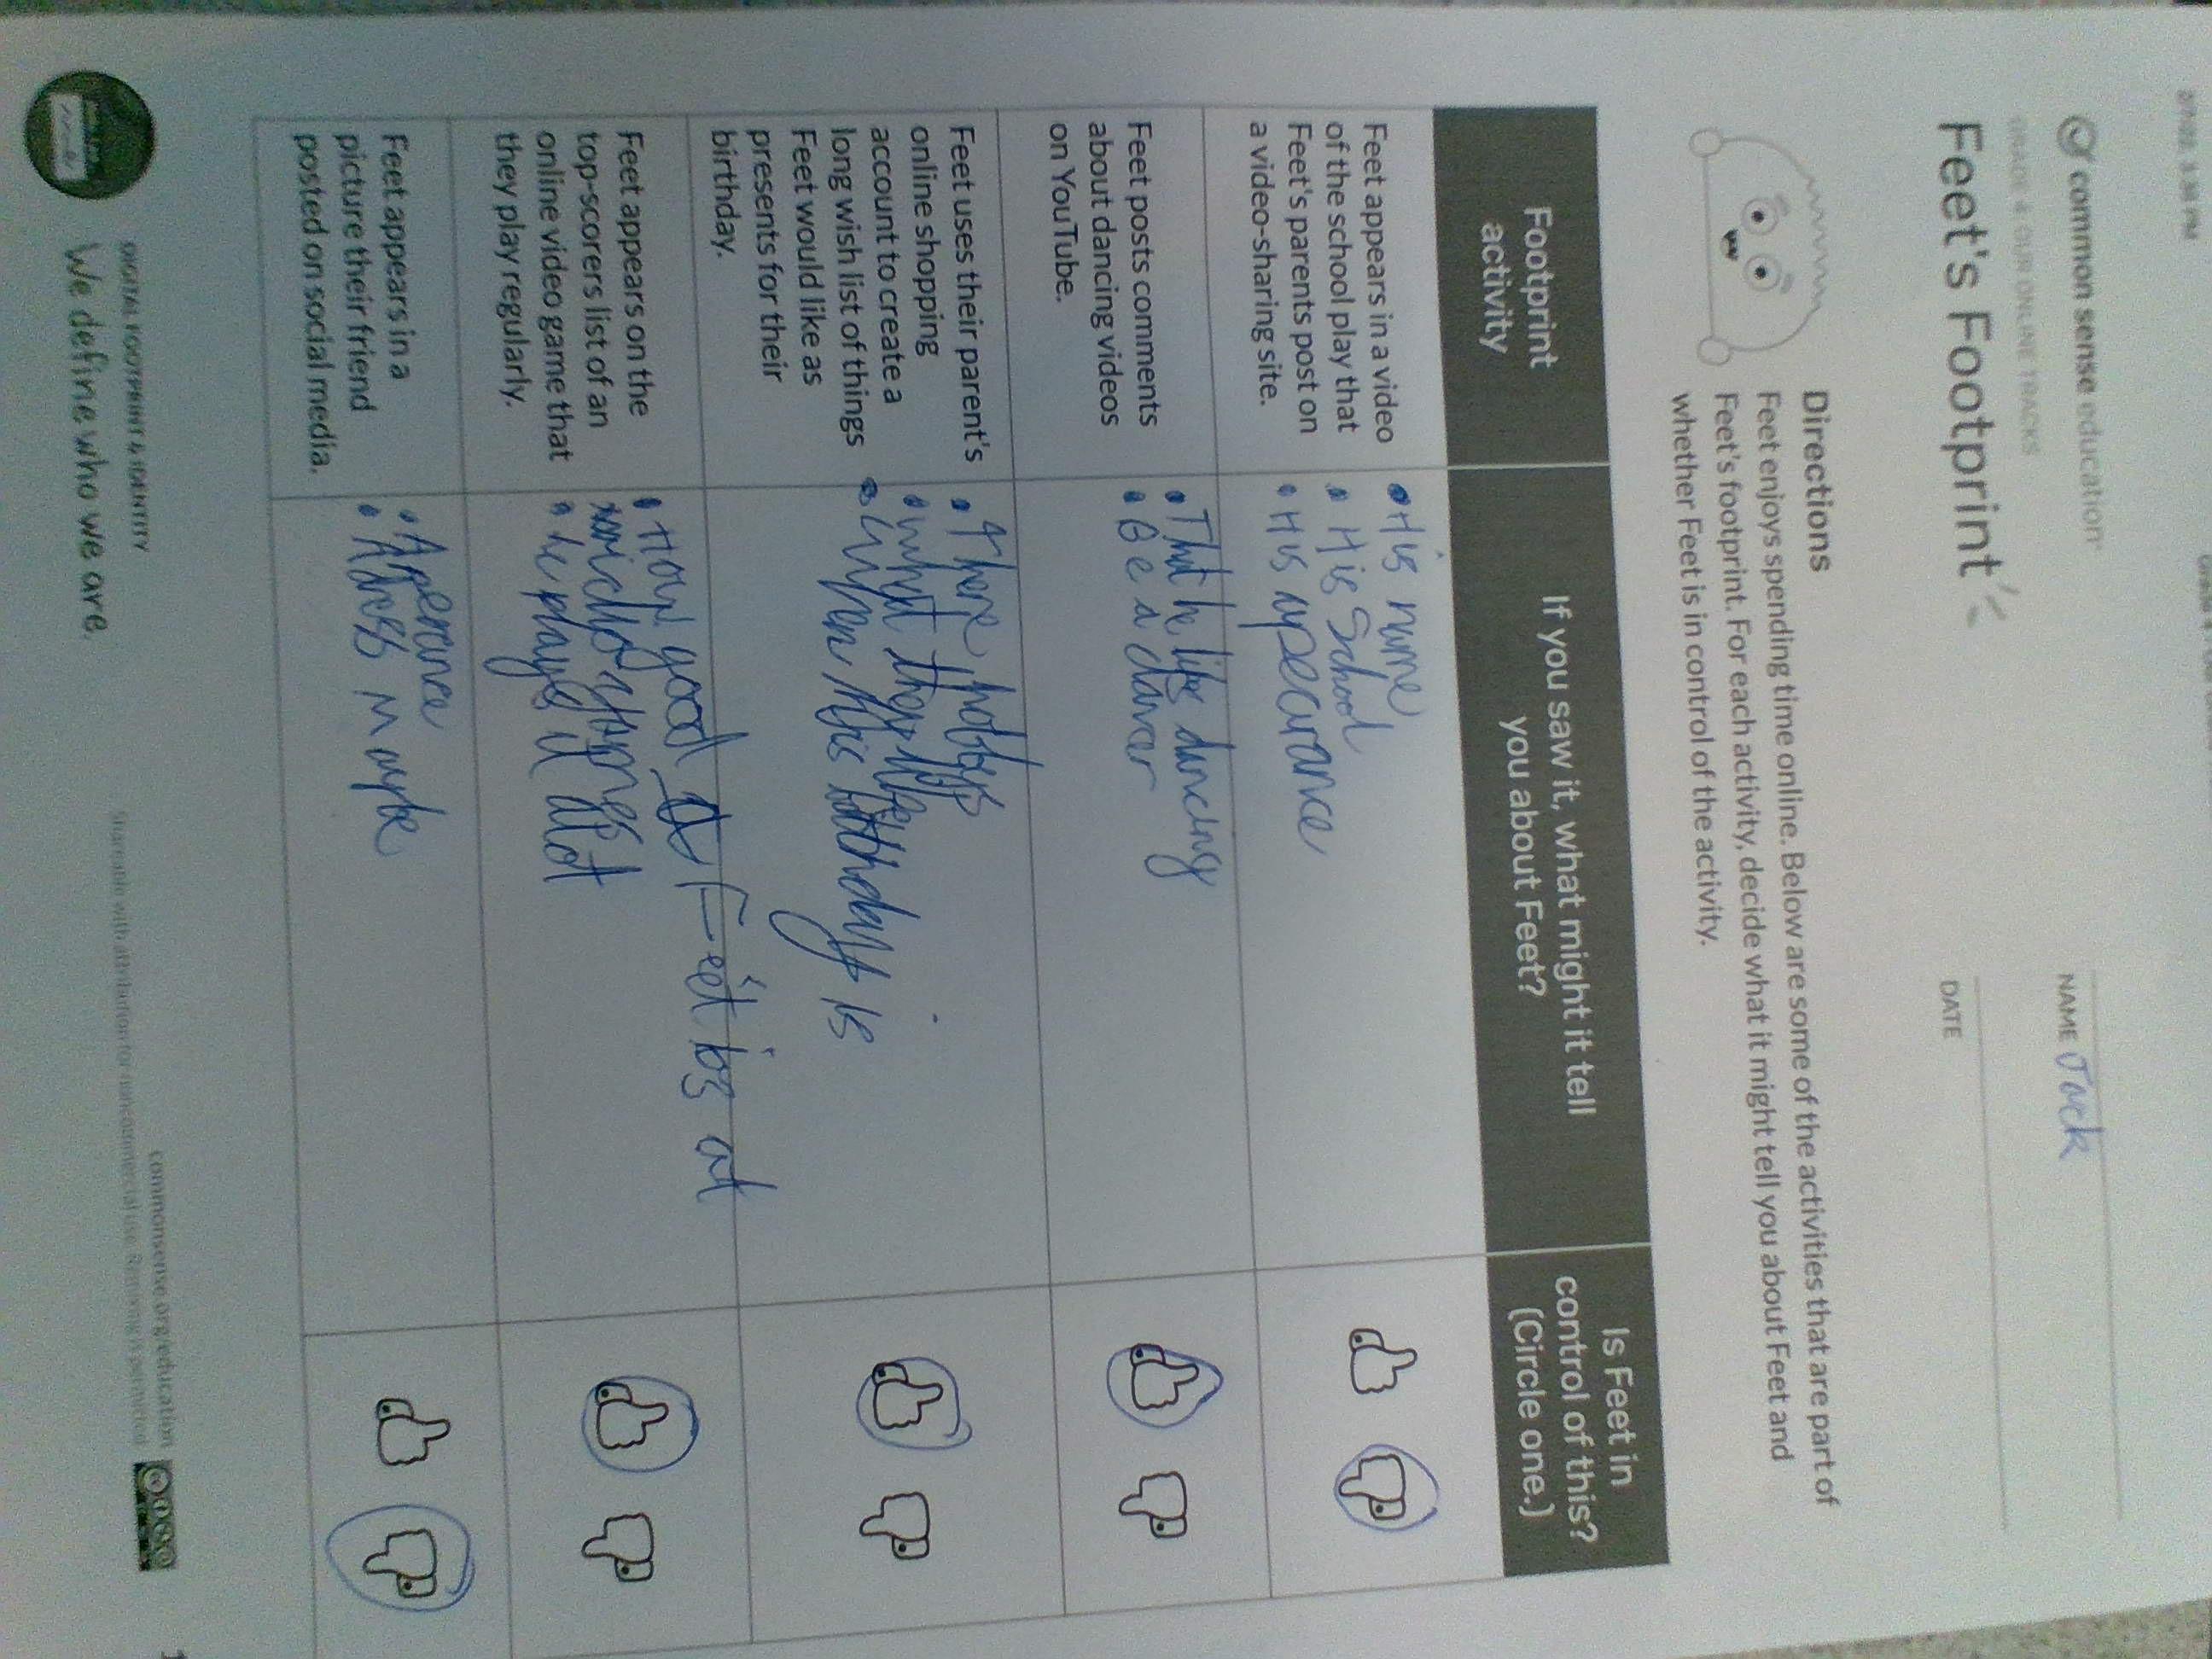 common sense education
GRADE 4: OUR ONLINE TRACKS
Feet's Footprint
NAME Jack
DATE
Directions
Feet enjoys spending time online. Below are some of the activities that are part of
Feet's footprint. For each activity, decide what it might tell you about Feet and
whether Feet is in control of the activity.
Footprint
activity
If you saw it, what might it tell
you about Feet?
Is Feet in
control of this?
(Circle one.)
Feet appears in a video
of the school play that
Feet's parents post on
a video-sharing site.
• His name
• His School
• His apearance
Feet posts comments
about dancing videos
on YouTube.
• That he likes dancing
• Be a dancer
Feet uses their parent's
online shopping
account to create a
long wish list of things
Feet would like as
presents for their
birthday.
• There hobbys
• what they like
• when his birthday is
Feet appears on the
top-scorers list of an
online video game that
they play regularly.
• How good Feet is at
games
• he plays it alot
Feet appears in a
picture their friend
posted on social media.
• Aperance
• Adress mayke
DIGITAL FOOTPRINT & IDENTITY
We define who we are.
commonsense.org/education
Shareable with attribution for noncommercial use. Remixing is permitted.
1